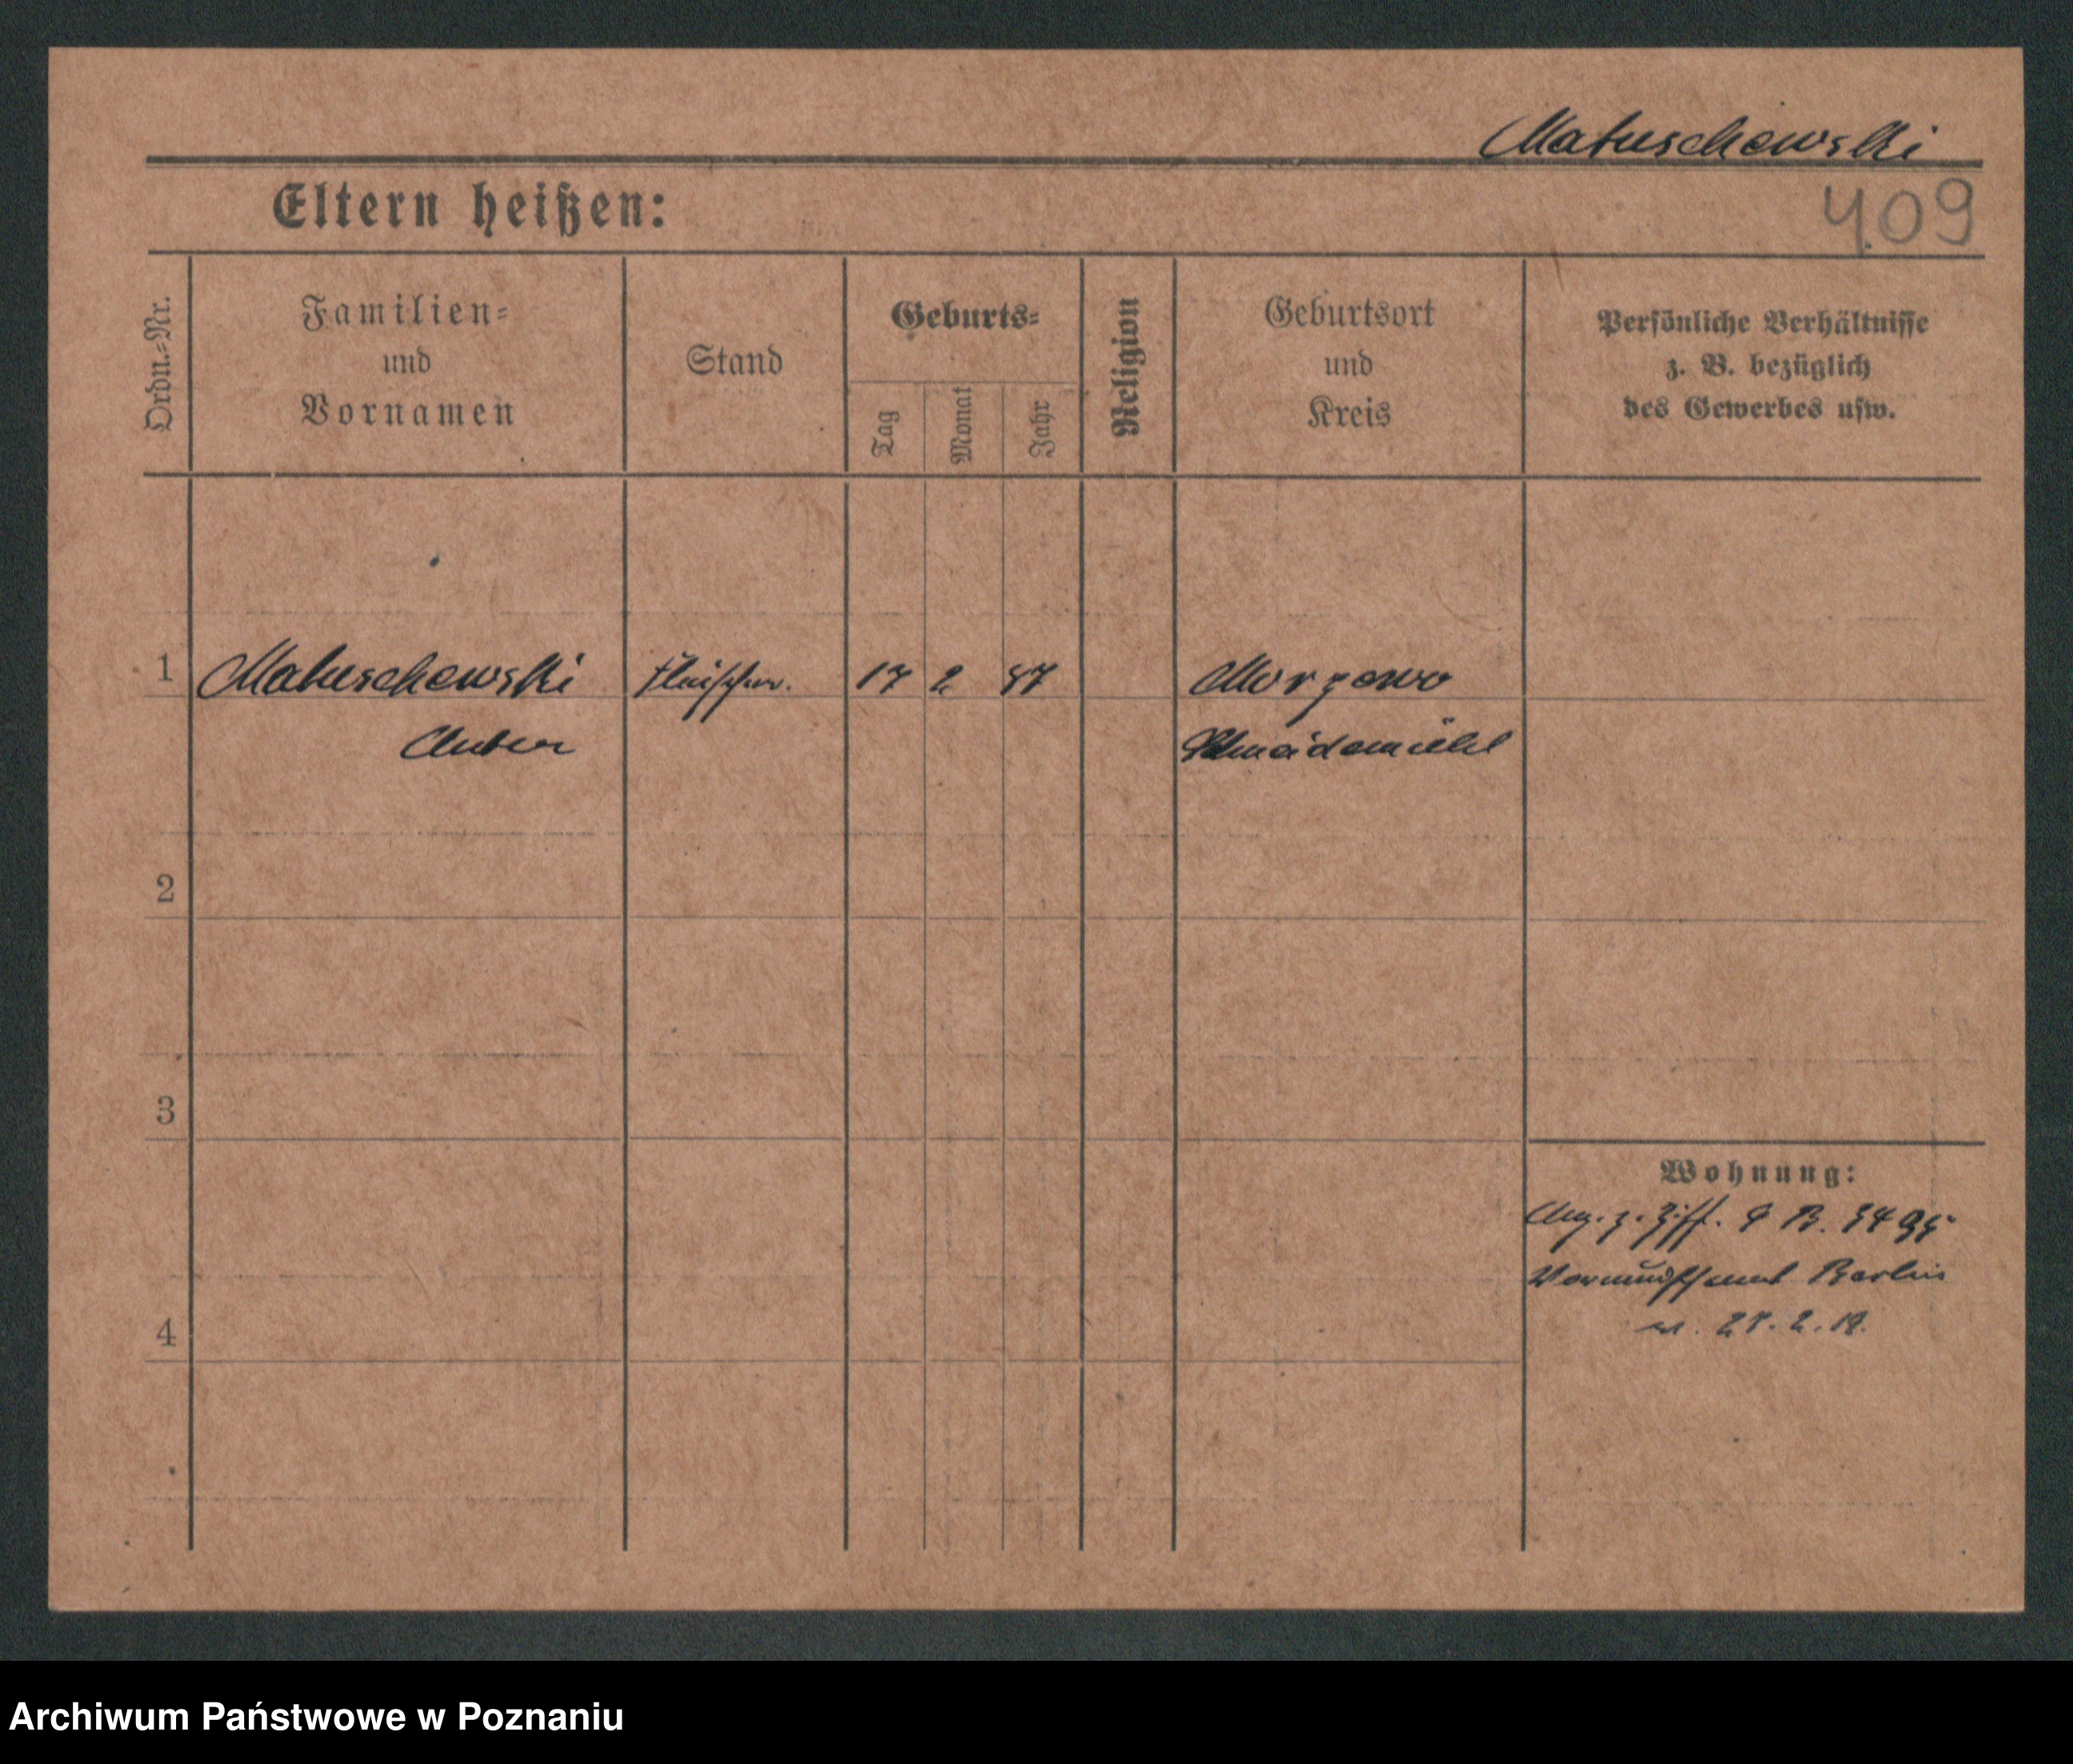 Matuschewski
Eltern heißen:
409
Ordn.-Nr.
Familien-
und
Vornamen
Stand
Geburts-
Tag
Monat
Jahr
Religion
Geburtsort
und
Kreis
Persönliche Verhältnisse
z. B. bezüglich
des Gewerbes usw.
1
Matuschewski
Fleischer.
17
2
87
Schneidemühl
2
3
Wohnung:
Ang. z. Ziff. B.
Berlin
4
2.
Archiwum Państwowe w Poznaniu